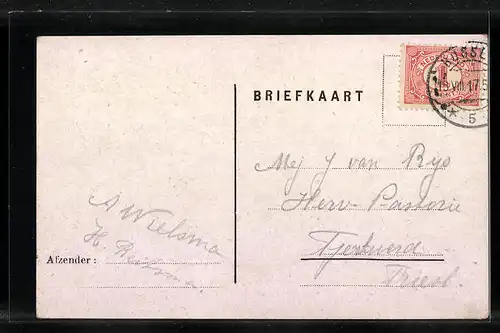 BRIEFKAART
Mej J van Rys
Herv. Pastorie
Tjerkwerd
Friesl.
A Wielsma
H.
Afzender :
5